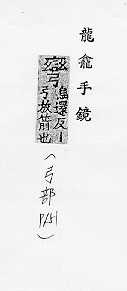 龍龕手鏡
烏還反丨
弓放箭也
(弓部 P151)